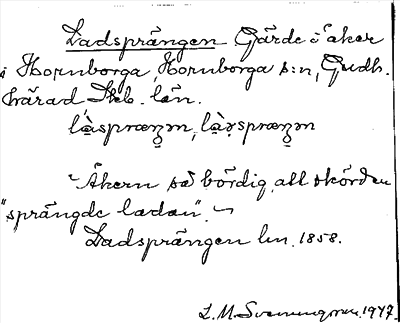 Ladsprängen Gärde i åker
i Hornborga Hornborga s:n, Gudh.
härad Skb. län.
làspræŋən, là̱ṣpræŋən
Åkern så bördig, all skörden
"sprängde ladan".
Ladsprängen lm. 1858.
L. M. Svenungsson 1947.